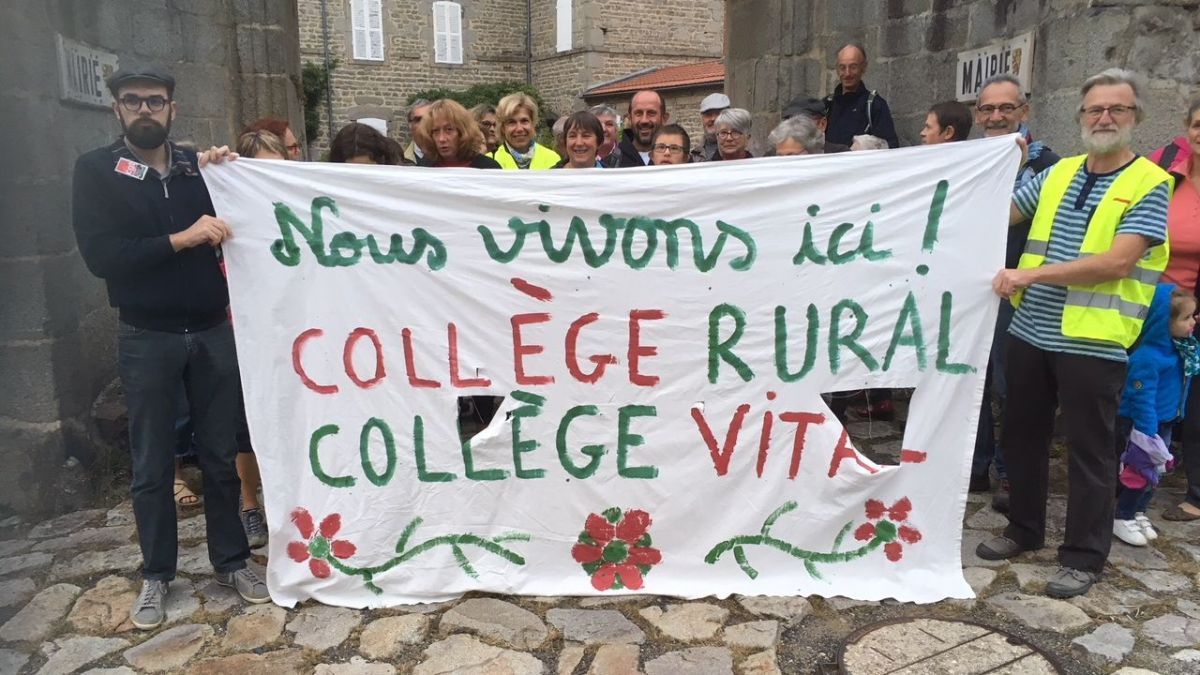 MAIRIE
MAIRIE
Nous vivons ici !
COLLÈGE RURAL
COLLÈGE VITAL